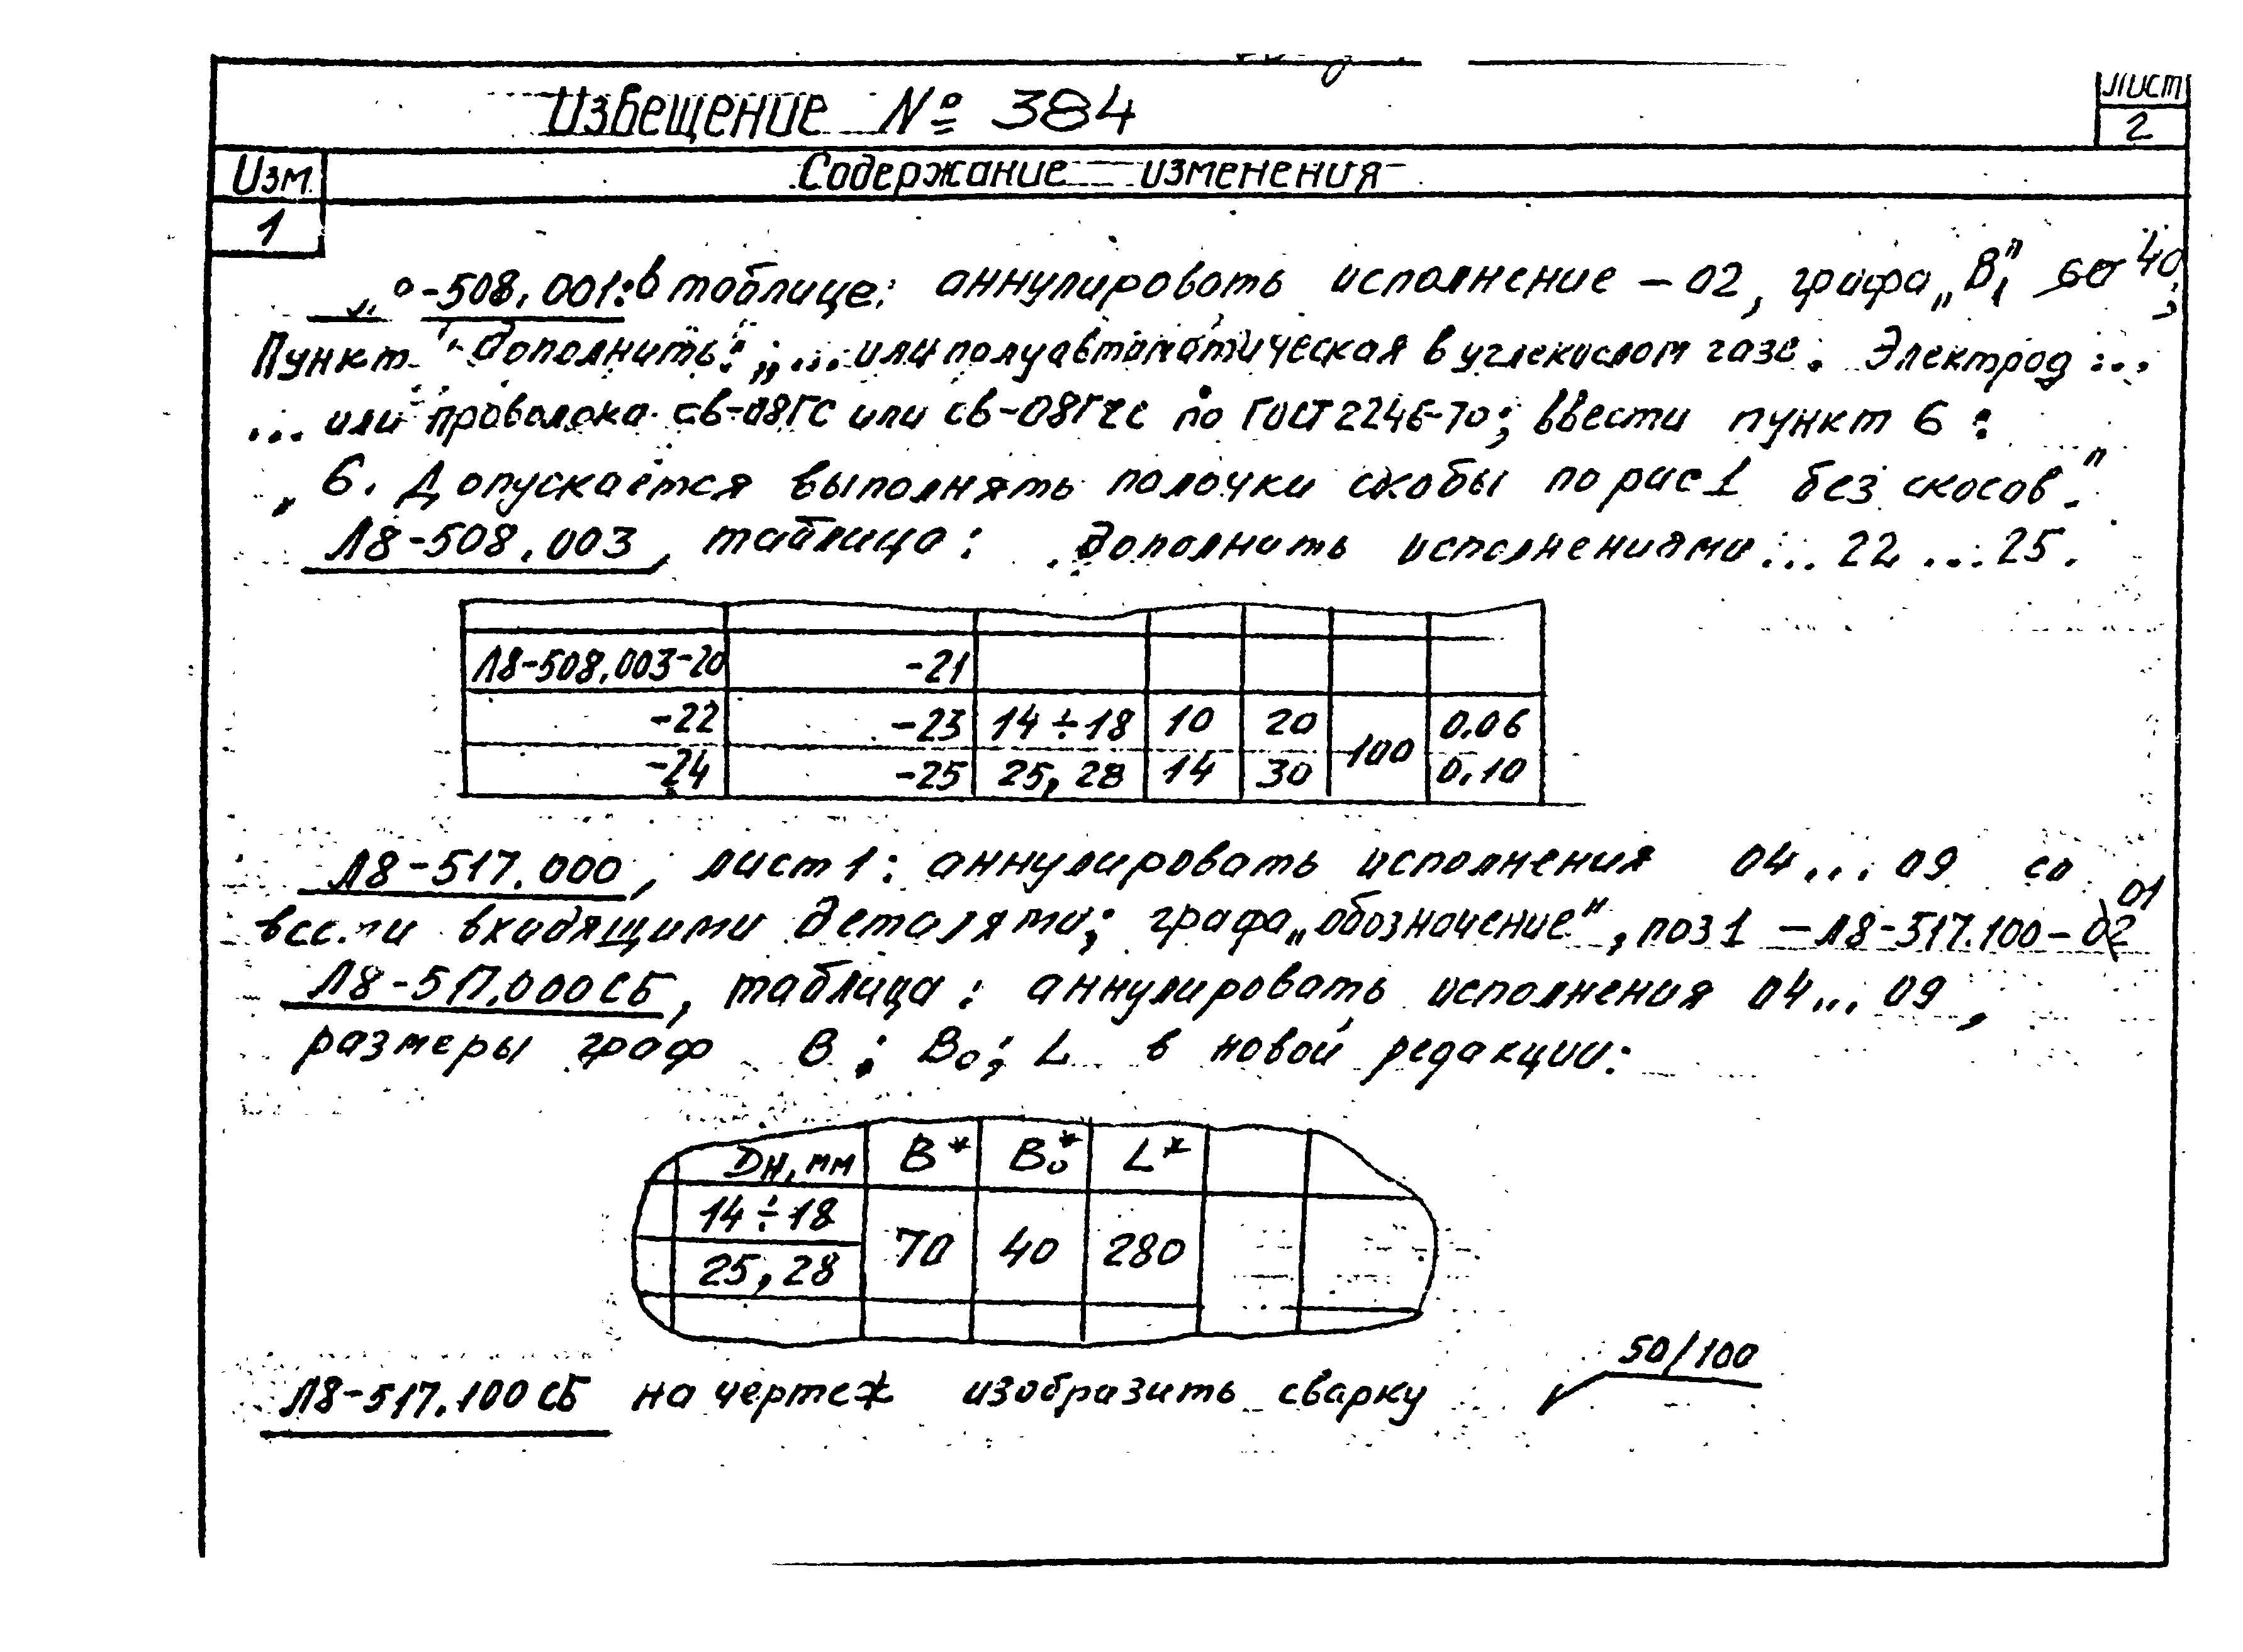 Извещение № 384
Лист
2
Изм. Содержание изменения
1
-508.001: в таблице: аннулировать исполнение -02, графа „В₁" 60 40;
Пункт дополнить: „... или полуавтоматическая в углекислом газе. Электрод ...
... или проволока св-08ГС или св-08Г2С по ГОСТ 2246-70; ввести пункт 6:
„6. Допускается выполнять полочки скобы по рис 1 без скосов."
Л8-508.003, таблица: дополнить исполнениями ... 22 ... 25.
Л8-508.003-20 -21
-22 -23 14÷18 10 20 100 0.06
-24 -25 25, 28 14 30 0.10
Л8-517.000, лист 1: аннулировать исполнения 04... 09 со
всеми входящими деталями; графа „обозначение", поз 1 – Л8-517.100-02 01
Л8-517.000 СБ, таблица: аннулировать исполнения 04... 09,
размеры граф В; В₀; L в новой редакции:
Dн, мм В* В₀* L*
14÷18 70 40 280
25, 28
Л8-517.100 СБ на чертеж изобразить сварку 50/100